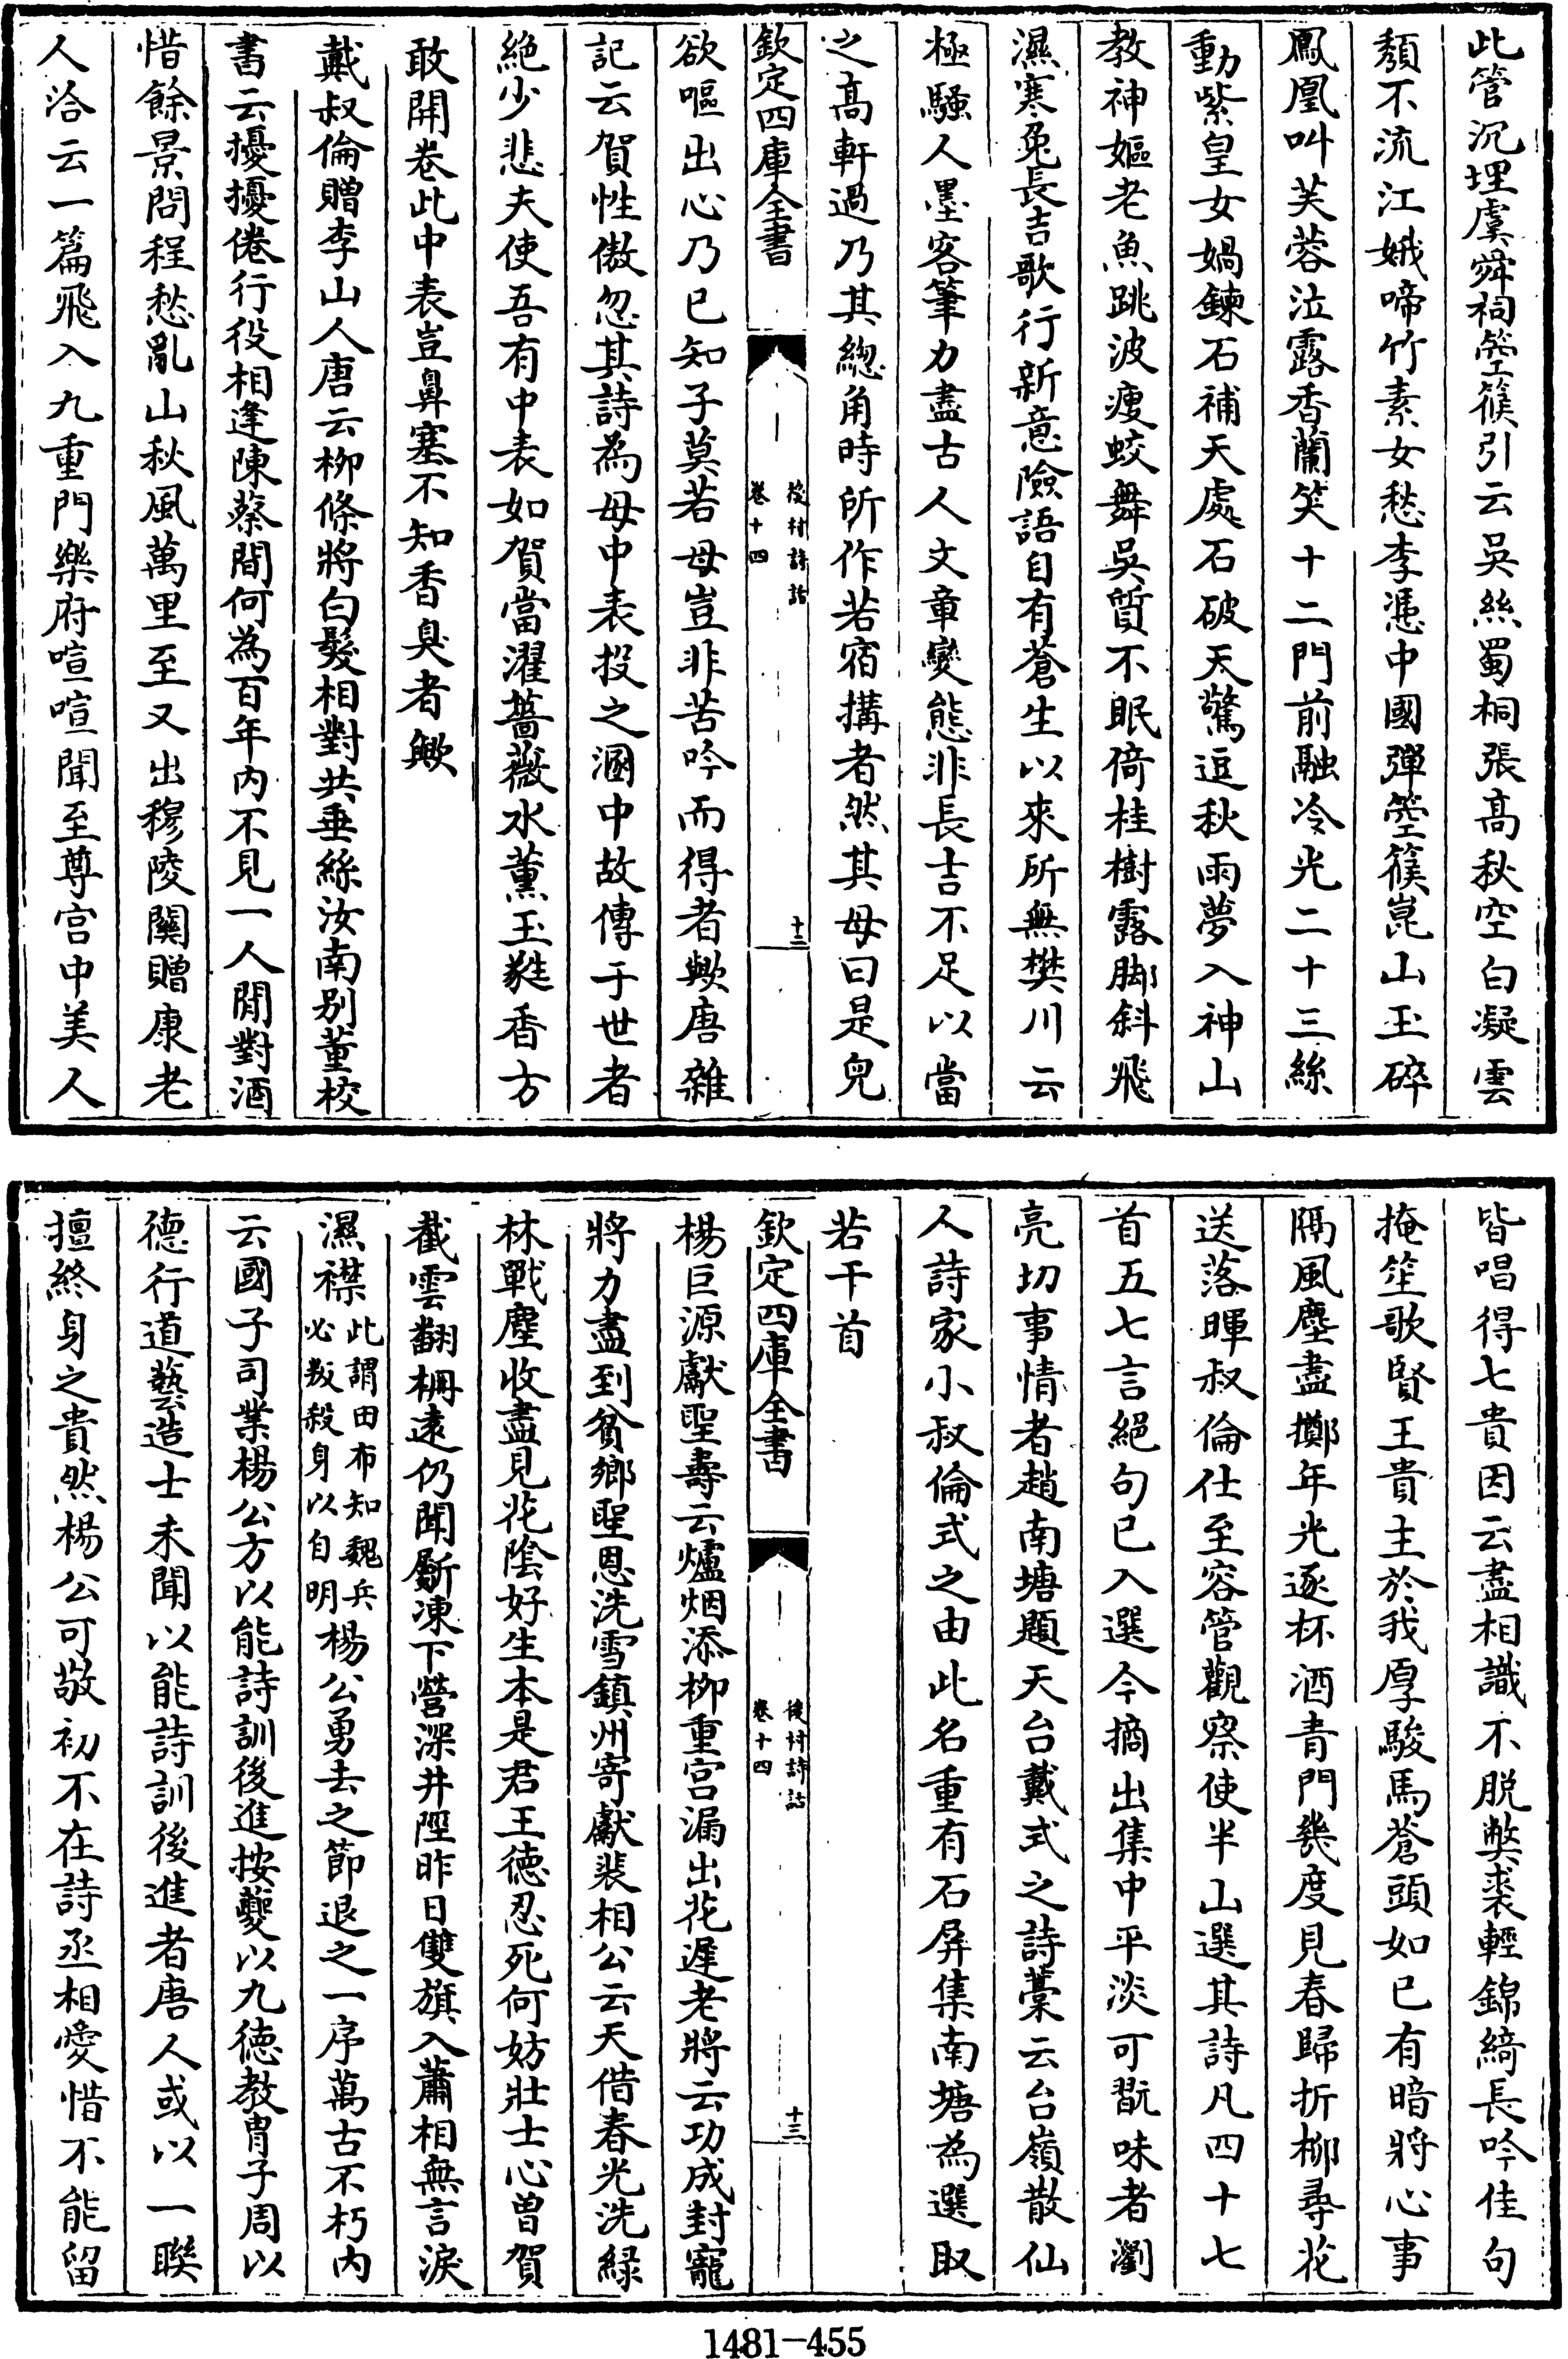 此管沉埋虞舜祠箜篌引云吳絲蜀桐張高秋空白凝雲
頽不流江娥啼竹素女愁李憑中國彈箜篌崑山玉碎
鳳凰叫芙蓉泣露香蘭笑十二門前融冷光二十三絲
動紫皇女媧鍊石補天處石破天驚逗秋雨夢入神山
教神嫗老魚跳波瘦蛟舞吳質不眠倚桂樹露脚斜飛
濕寒兔長吉歌行新意險語自有蒼生以來所無樊川云
極騷人墨客筆力盡古人文章變態非長吉不足以當
之高軒過乃其總角時所作若宿搆者然其母曰是兒
欽定四庫全書
後村詩話
卷十四
十二
欲嘔出心乃已知子莫若母豈非苦吟而得者歟唐雜
記云賀性傲忽其詩為母中表投之溷中故傳于世者
絕少悲夫使吾有中表如賀當濯薔薇水薰玉蕤香方
敢開卷此中表豈鼻塞不知香臭者歟
戴叔倫贈李山人唐云柳條將白髮相對共垂絲汝南别董校
書云擾擾倦行役相逢陳蔡間何為百年内不見一人閒對酒
惜餘景問程愁亂山秋風萬里至又出穆陵關贈康老
人洽云一篇飛入九重門樂府喧喧聞至尊宮中美人
皆唱得七貴因云盡相識不脱弊裘輕錦綺長吟佳句
掩笙歌賢王貴主於我厚駿馬蒼頭如已有暗將心事
隔風塵盡擲年光逐杯酒青門幾度見春歸折柳尋花
送落暉叔倫仕至容管觀察使半山選其詩凡四十七
首五七言絕句已入選今摘出集中平淡可翫味者瀏
亮切事情者趙南塘題天台戴式之詩藁云台嶺散仙
人詩家小叔倫式之由此名重有石屏集南塘為選取
若干首
欽定四庫全書
後村詩話
卷十四
十三
楊巨源獻聖壽云爐烟添柳重宮漏出花遲老將云功成封寵
將力盡到貧鄉聖恩洗雪鎮州寄獻裴相公云天借春光洗緑
林戰塵收盡見花陰好生本是君王德忍死何妨壯士心曾賀
截雲翻柵遠仍聞斸凍下營深井陘昨日雙旗入蕭相無言淚
濕襟此謂田布知魏兵必叛殺身以自明楊公勇去之節退之一序萬古不朽内
云國子司業楊公方以能詩訓後進按夔以九德教冑子周以
德行道藝造士未聞以能詩訓後進者唐人或以一聯
擅終身之貴然楊公可敬初不在詩丞相愛惜不能留
1481-455